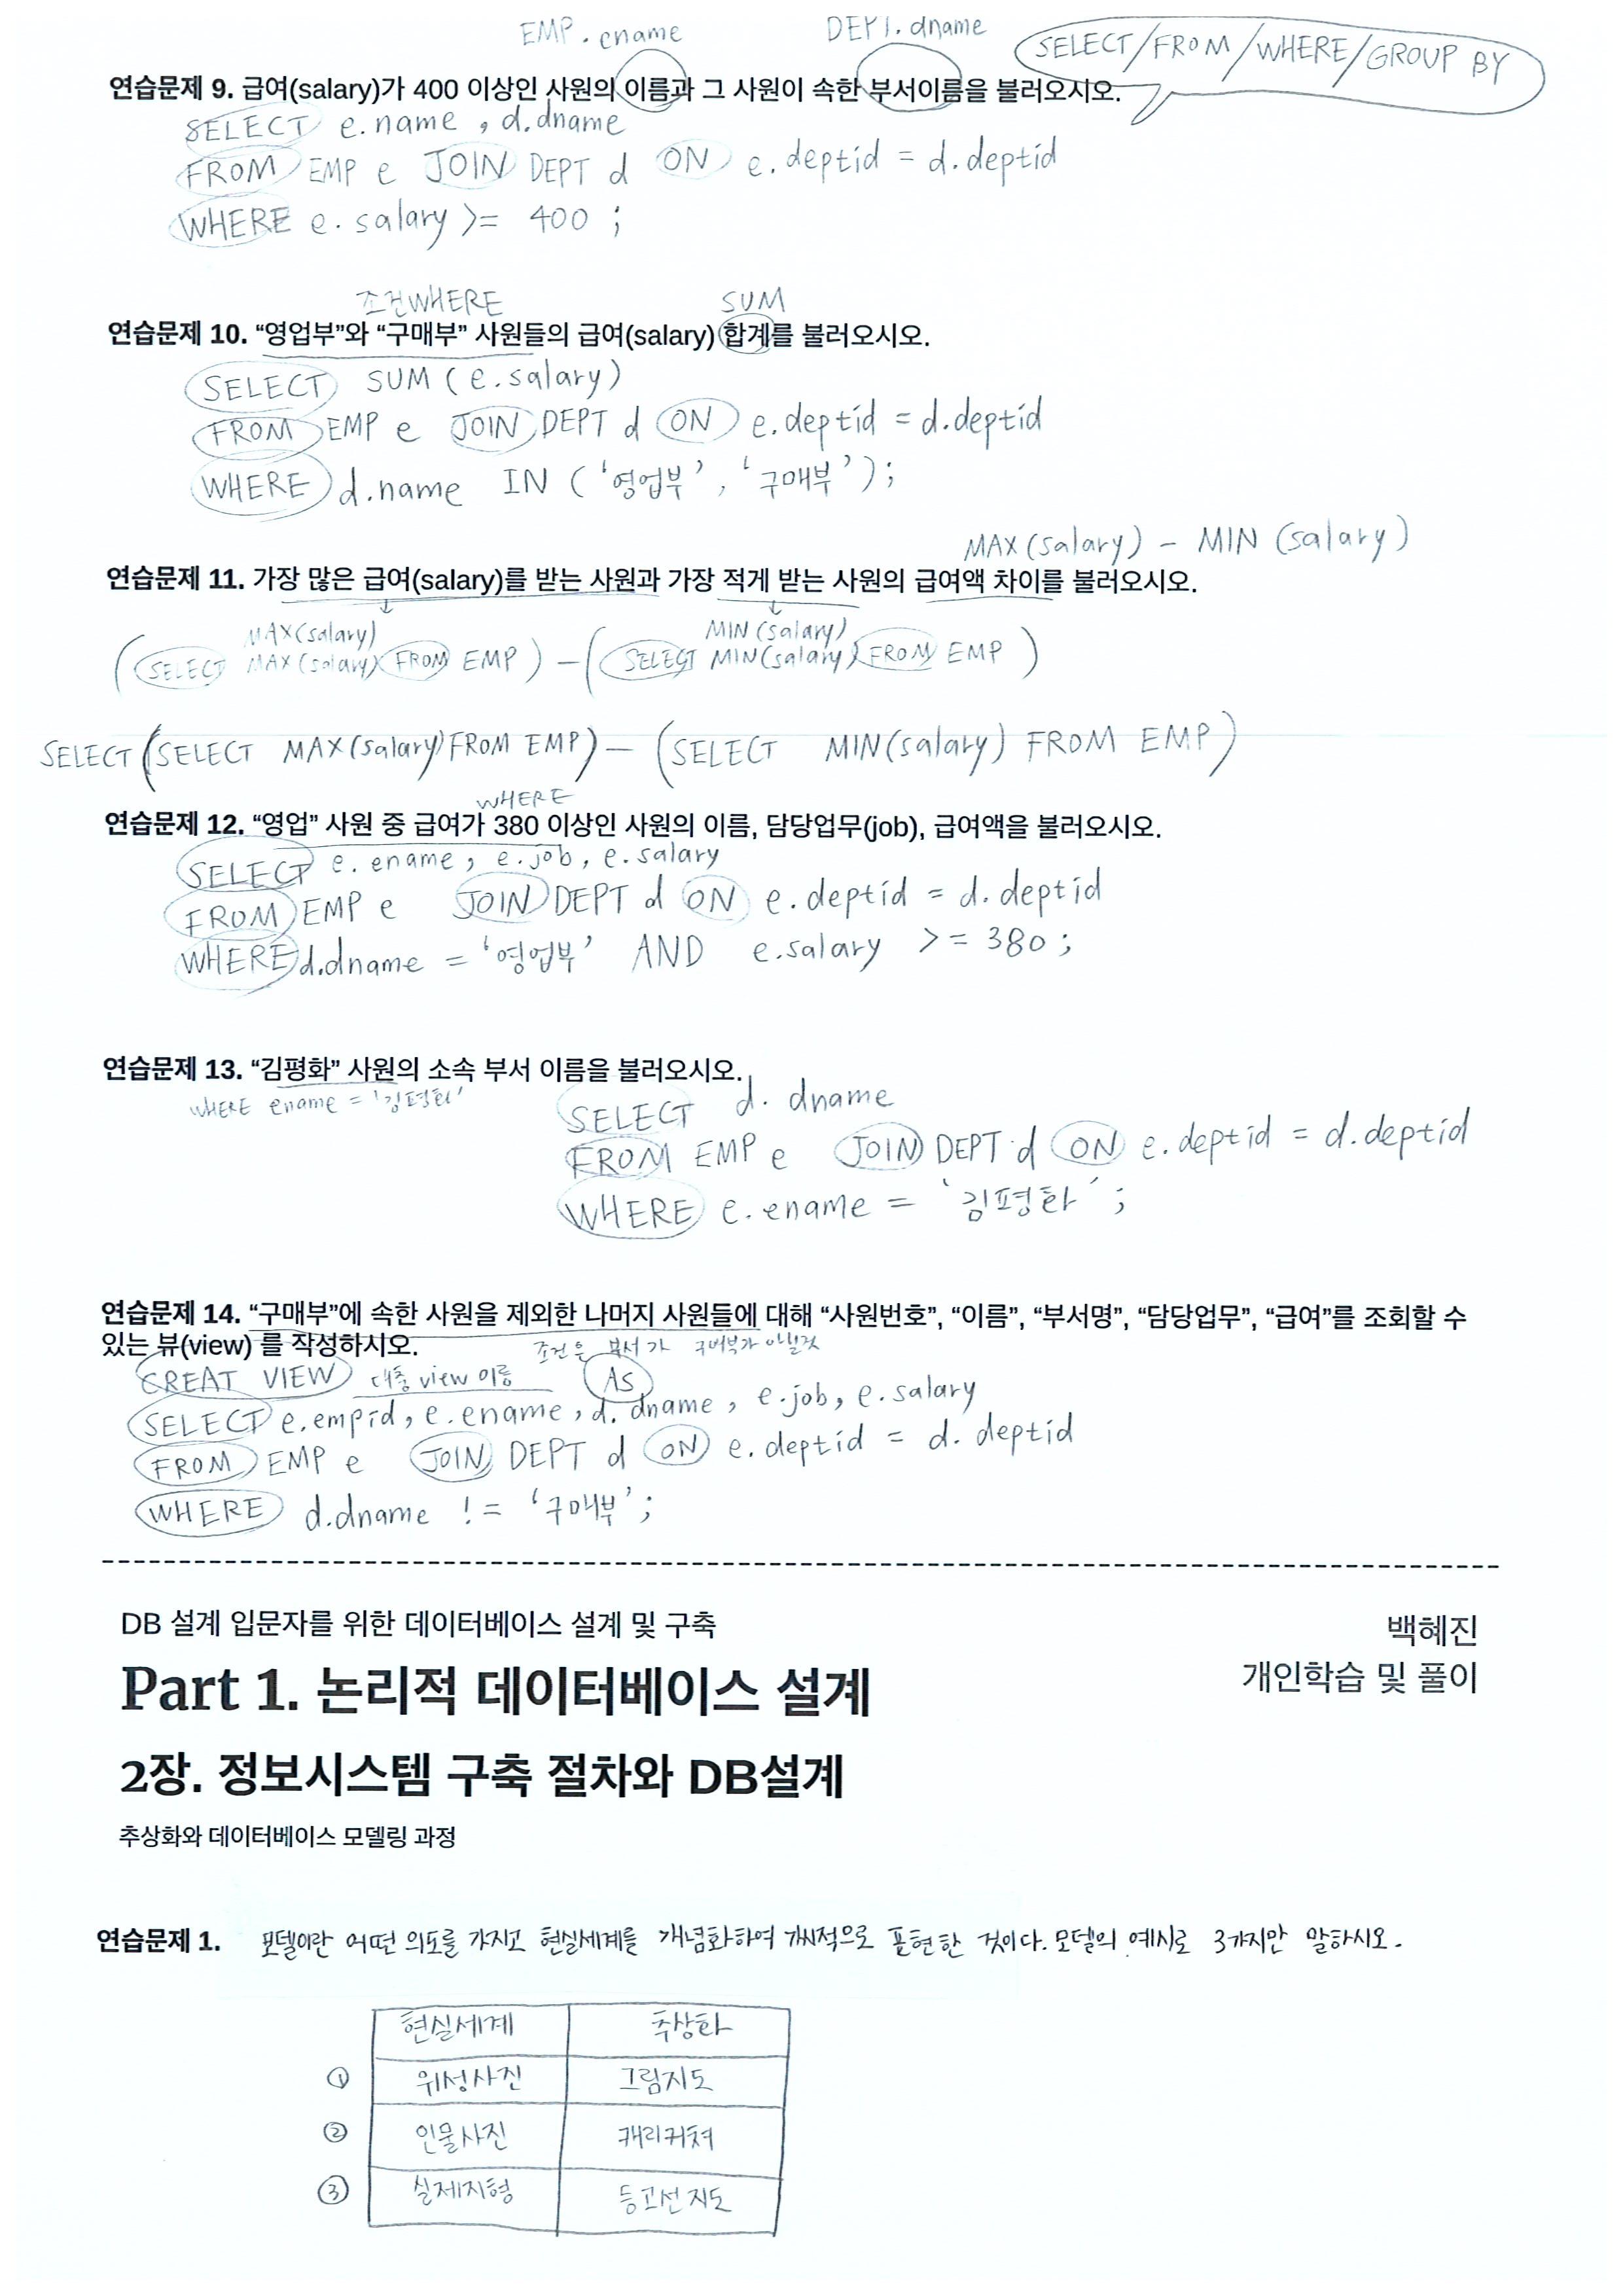 EMP.ename DEPT.dname SELECT/FROM/WHERE/GROUP BY
연습문제 9. 급여(salary)가 400 이상인 사원의 이름과 그 사원이 속한 부서이름을 불러오시오.
SELECT e.name, d.dname
FROM EMP e JOIN DEPT d ON e.deptid = d.deptid
WHERE e.salary >= 400 ;
조건WHERE SUM
연습문제 10. “영업부”와 “구매부” 사원들의 급여(salary) 합계를 불러오시오.
SELECT SUM(e.salary)
FROM EMP e JOIN DEPT d ON e.deptid = d.deptid
WHERE d.name IN ('영업부', '구매부');
MAX(salary) - MIN (salary)
연습문제 11. 가장 많은 급여(salary)를 받는 사원과 가장 적게 받는 사원의 급여액 차이를 불러오시오.
MAX(salary) MIN(salary)
(SELECT MAX(salary) FROM EMP) - (SELECT MIN(salary) FROM EMP)
SELECT (SELECT MAX(salary) FROM EMP) - (SELECT MIN(salary) FROM EMP)
WHERE
연습문제 12. “영업” 사원 중 급여가 380 이상인 사원의 이름, 담당업무(job), 급여액을 불러오시오.
SELECT e.ename, e.job, e.salary
FROM EMP e JOIN DEPT d ON e.deptid = d.deptid
WHERE d.dname = '영업부' AND e.salary >= 380 ;
연습문제 13. “김평화” 사원의 소속 부서 이름을 불러오시오.
WHERE ename = '김평화'
SELECT d.dname
FROM EMP e JOIN DEPT d ON e.deptid = d.deptid
WHERE e.ename = '김평화' ;
연습문제 14. “구매부”에 속한 사원을 제외한 나머지 사원들에 대해 “사원번호”, “이름”, “부서명”, “담당업무”, “급여”를 조회할 수
있는 뷰(view) 를 작성하시오.
조건은 부서가 구매부가 아닐것
CREAT VIEW 대충 view 이름 AS
SELECT e.empid, e.ename, d.dname, e.job, e.salary
FROM EMP e JOIN DEPT d ON e.deptid = d.deptid
WHERE d.dname != '구매부';
DB 설계 입문자를 위한 데이터베이스 설계 및 구축
백혜진
Part 1. 논리적 데이터베이스 설계
개인학습 및 풀이
2장. 정보시스템 구축 절차와 DB설계
추상화와 데이터베이스 모델링 과정
연습문제 1. 모델이란 어떤 의도를 가지고 현실세계를 개념화하여 가시적으로 표현한 것이다. 모델의 예시로 3가지만 말하시오.
현실세계 추상화
① 위성사진 그림지도
② 인물사진 캐리커쳐
③ 실제지형 등고선 지도